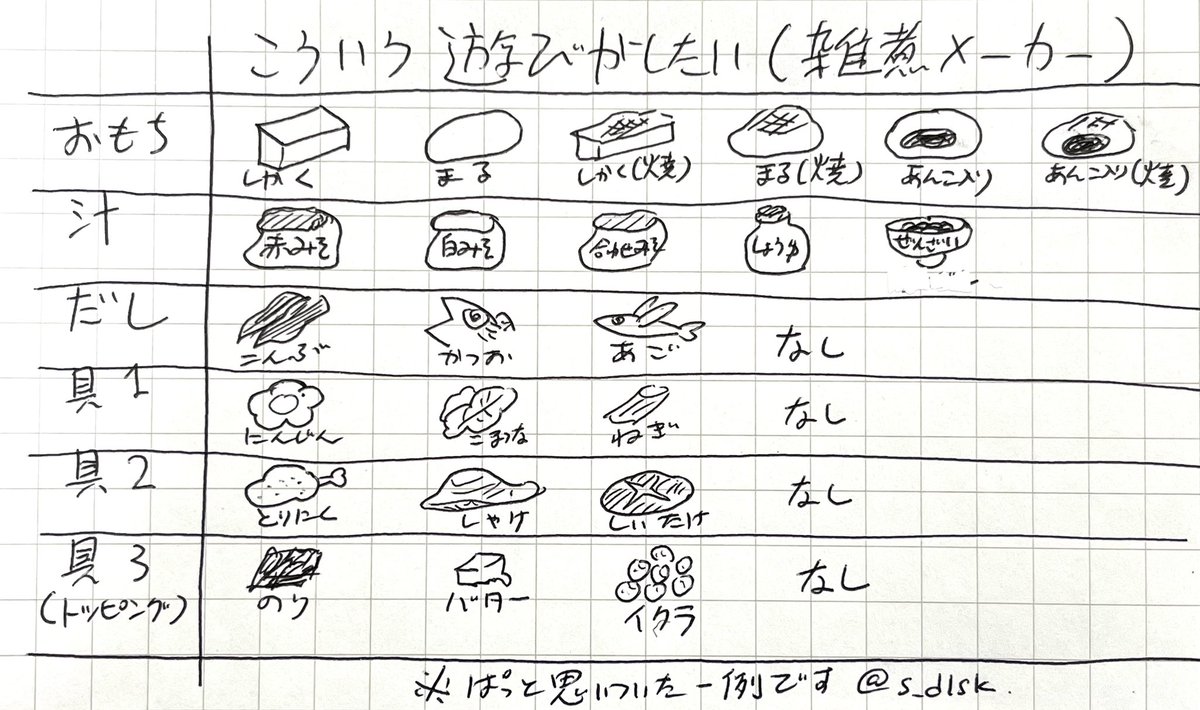 こういう遊びがしたい(雑煮メーカー)
おもち
しかく まる しかく(焼) まる(焼) あんこ入り あんこ入り(焼)
汁
赤みそ 白みそ 合わせみそ しょうゆ ぜんざい
だし
こんぶ かつお あご なし
具1
にんじん こまつな ねぎ なし
具2
とりにく しゃけ しいたけ なし
具3
(トッピング)
のり バター イクラ なし
※ぱっと思いついた一例です @s_d1sk